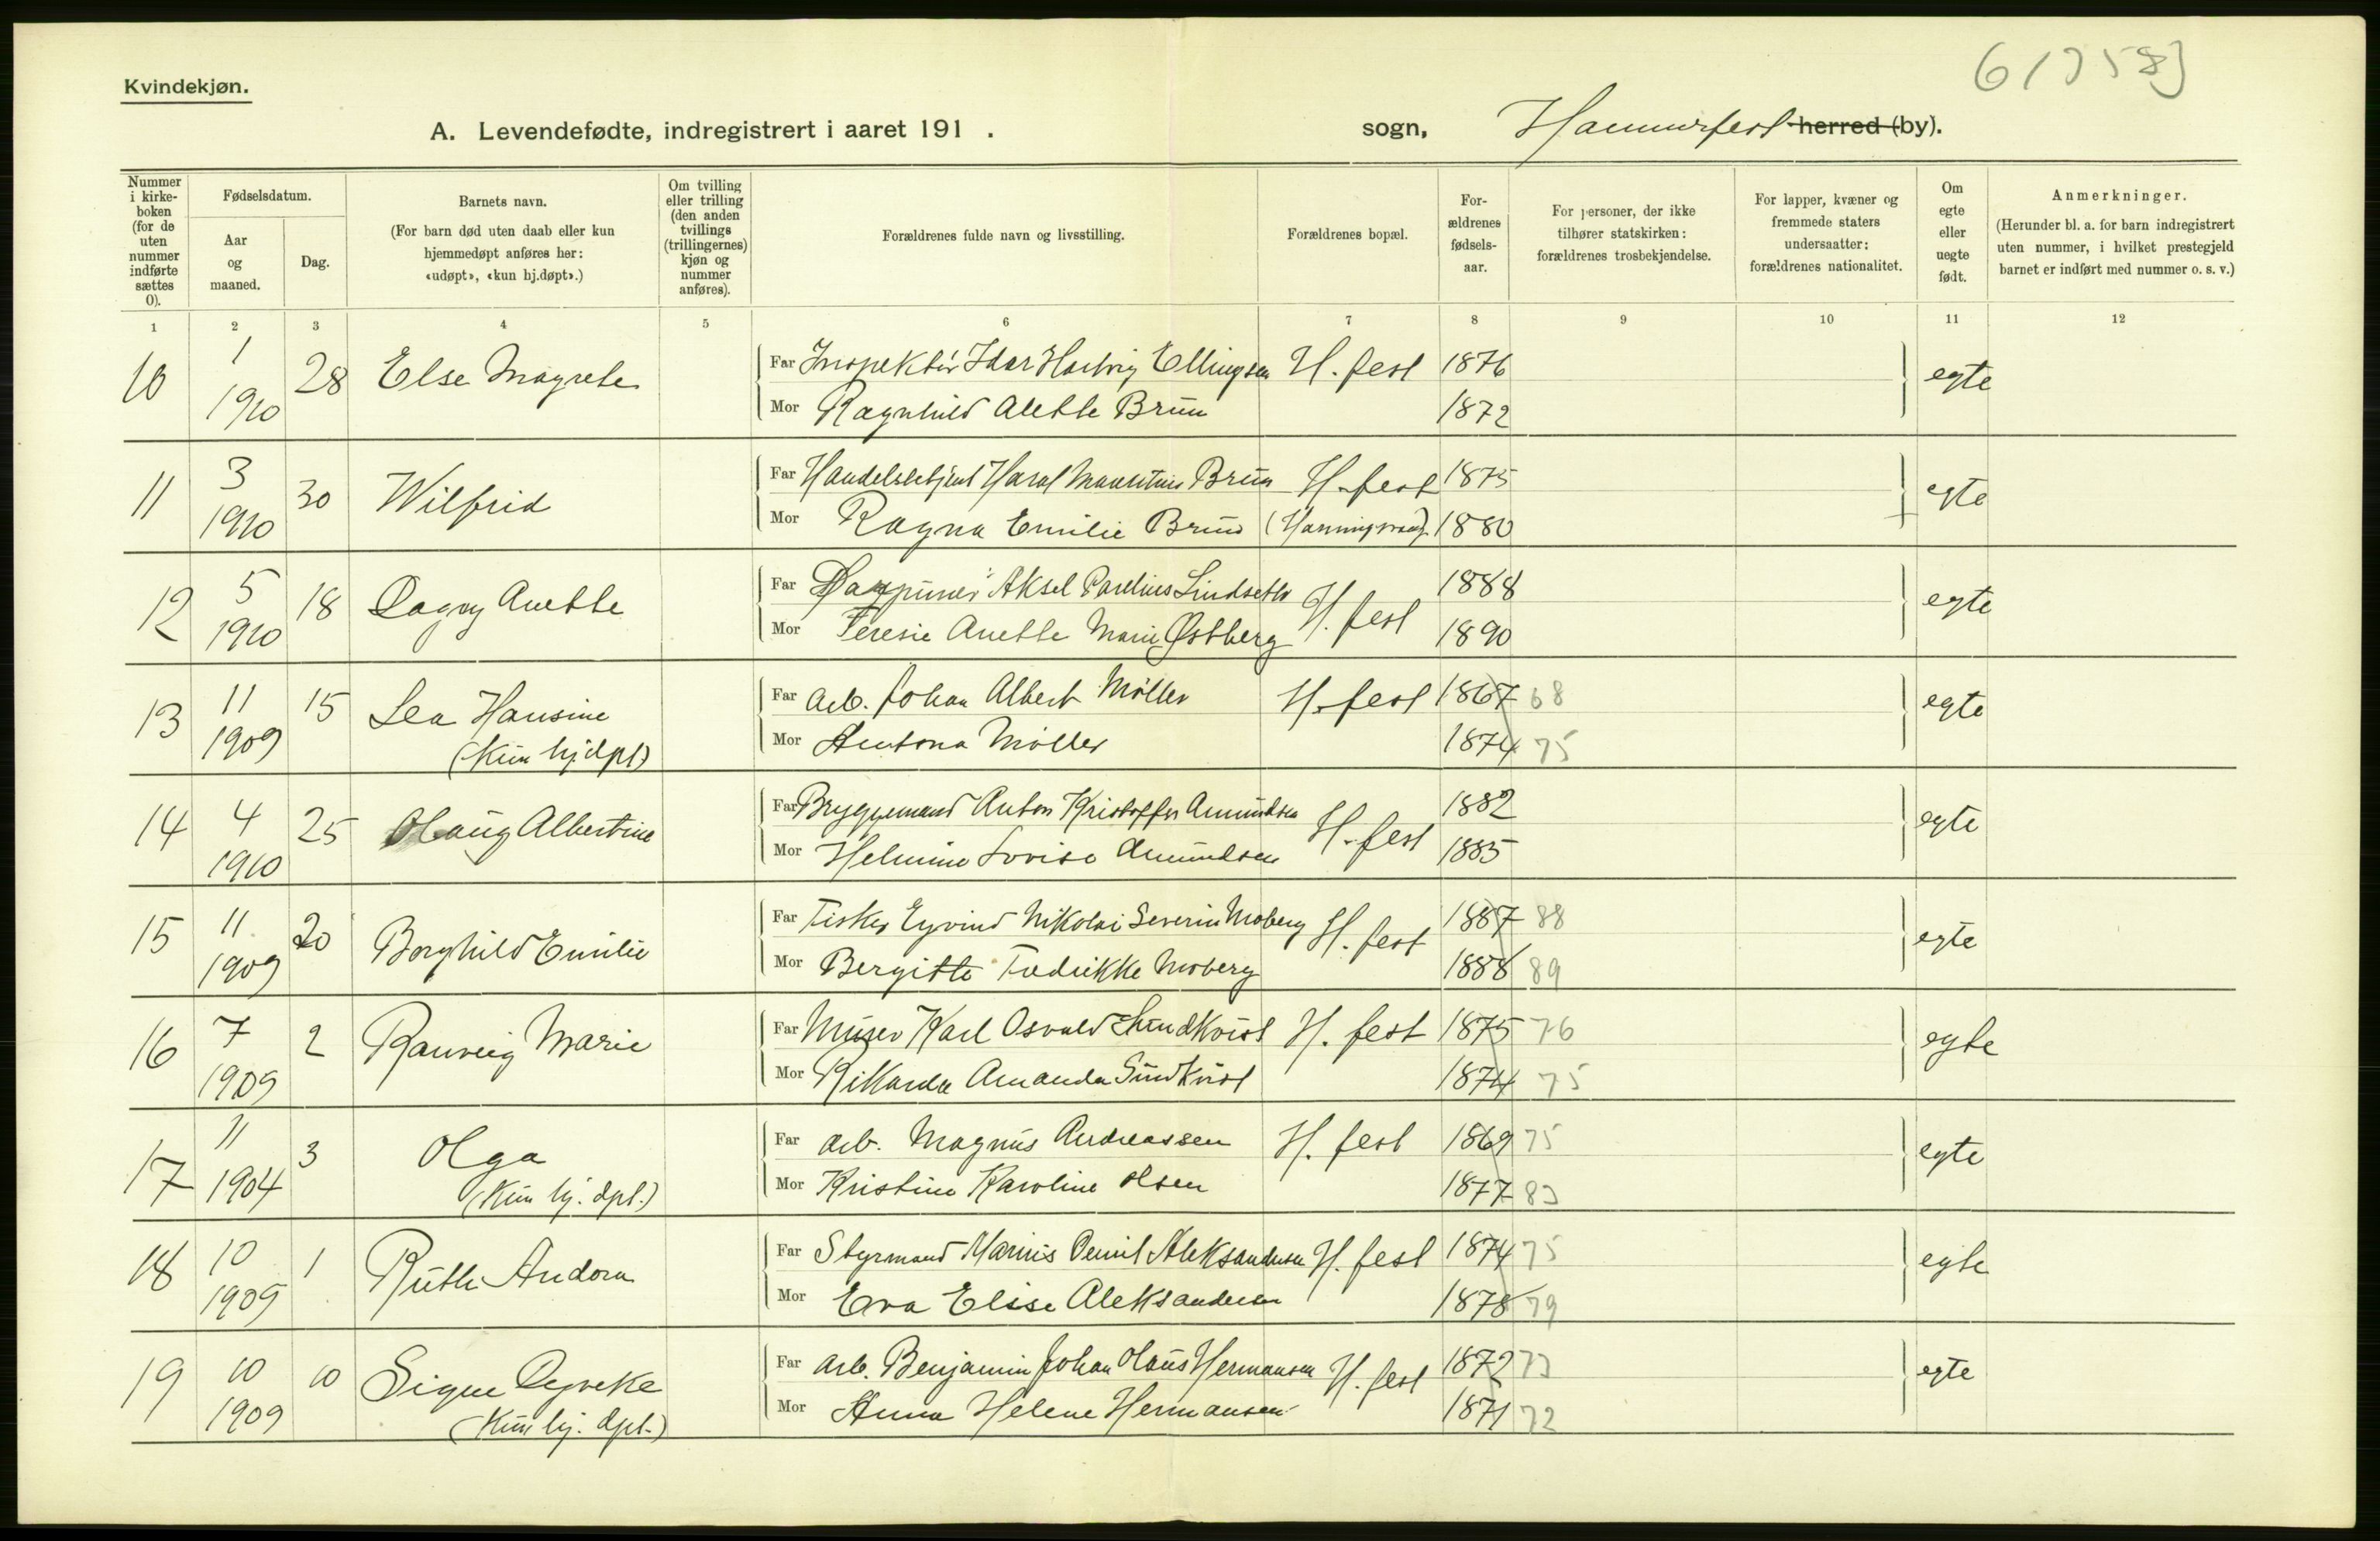 61758]
Kvindekjøn.
A. Levendefødte, indregistrert i aaret 191 . sogn, Hammerfest herred (by).
Nummer i kirkeboken (for de uten nummer indførte sættes 0).
Fødselsdatum.
Aar og maaned.
Dag.
Barnets navn.
(For barn død uten daab eller kun hjemmedøpt anføres her: «udøpt», «kun hj.døpt».)
Om tvilling eller trilling (den anden tvillings (trillingernes) kjøn og nummer anføres).
Forældrenes fulde navn og livsstilling.
Forældrenes bopæl.
Forældrenes fødselsaar.
For personer, der ikke tilhører statskirken: forældrenes trosbekjendelse.
For lapper, kvæner og fremmede staters undersaatter: forældrenes nationalitet.
Om egte eller uegte født.
Anmerkninger.
(Herunder bl. a. for barn indregistrert uten nummer, i hvilket prestegjeld barnet er indført med nummer o. s. v.)
1 2 3 4 5 6 7 8 9 10 11 12
10 1 1910 28 Else Magrete Far Inspektør Idar Hartvig Ellingsen H.fest 1876 egte
Mor Ragnhild Alette Brun 1872
11 3 1910 30 Wilfrid Far Handelsbetjent Haral Mauritius Brun H.fest 1875 egte
Mor Ragna Emilie Brun (Honningsvaag) 1880
12 5 1910 18 Dagny Anette Far Aksel Parelius Lindseth H.fest 1888 egte
Mor Teresie Anette Marie Østberg 1890
13 11 1909 15 Lea Hansine Far Arb. Johan Albert Møller H.fest 1867 68 egte
(Kun hjdpt) Mor Antona Møller 1874 75
14 4 1910 25 Olaug Albertine Far Bryggemand Anton Kristoffer Amundsen H.fest 1882 egte
Mor Helmine Lovise Amundsen 1885
15 11 1909 20 Borghild Emilie Far Fisker Eyvind Nikolai Severin Moberg H.fest 1887 88 egte
Mor Bergitte Fredrikke Moberg 1888 89
16 7 1909 2 Ranveig Marie Far Murer Karl Osvald Sundkvist H. fest 1875 76 egte
Mor Rikarda Amanda Sundkvist 1874 75
17 11 1904 3 Olga Far Arb. Magnus Andreassen H. fest 1869 75 egte
(Kun hj. dpt.) Mor Kristine Karoline Olsen 1877 83
18 10 1909 1 Ruth Andora Far Styrmand Marius Pemil Aleksandersen H. fest 1874 75 egte
Mor Eva Elise Aleksandersen 1878 79
19 10 1909 10 Signe Dyveke Far Arb. Benjamin Johan Olaus Hermansen H. fest 1872 73 egte
(Kun hj. dpt.) Mor Anna Helene Hermansen 1871 72